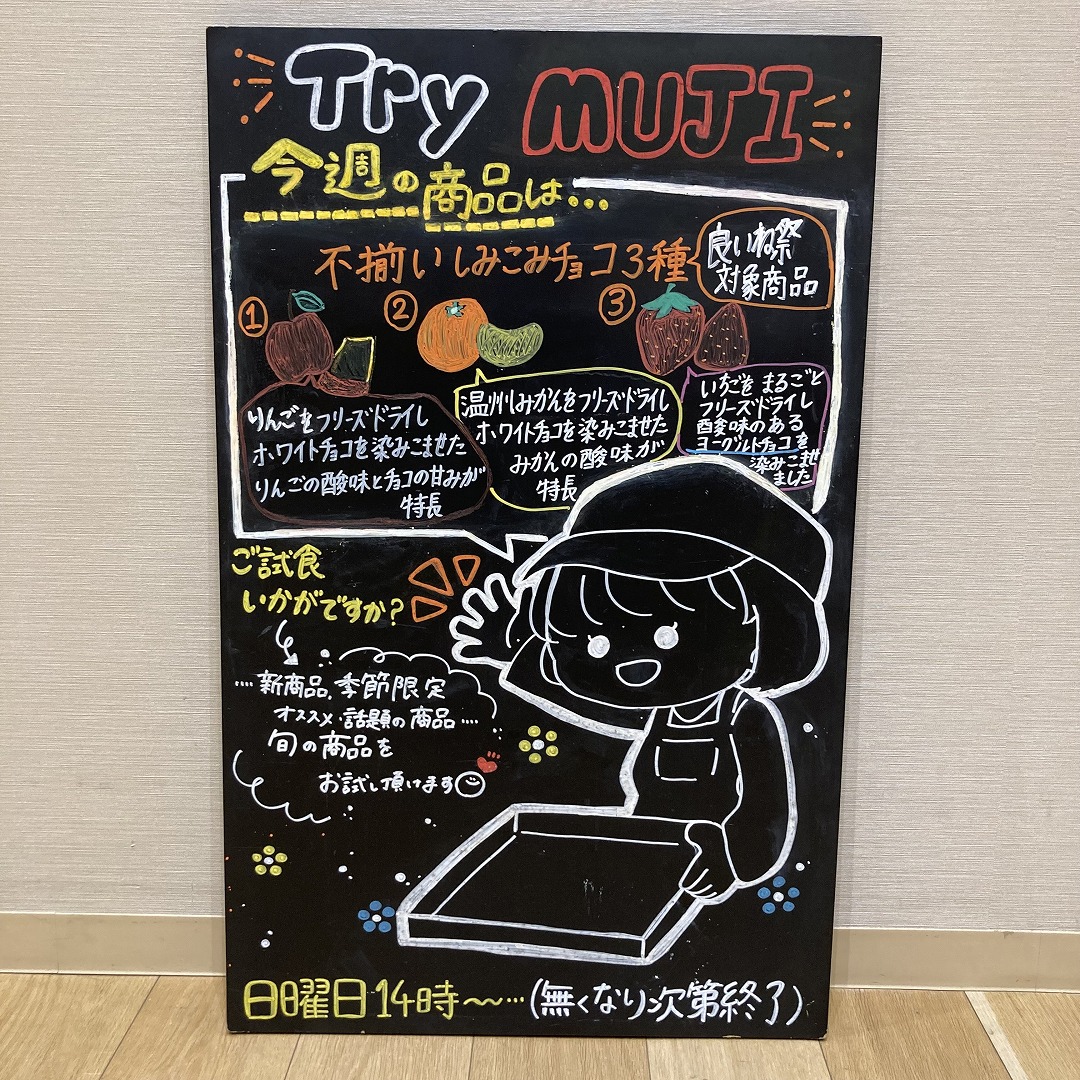 Try MUJI
今週の商品は...
不揃いしみこみチョコ3種
良いね祭
対象商品
①
りんごをフリーズドライし
ホワイトチョコを染みこませた
りんごの酸味とチョコの甘みが
特長
②
温州みかんをフリーズドライし
ホワイトチョコを染みこませた
みかんの酸味が
特長
③
いちごをまるごと
フリーズドライし
酸味のある
ヨーグルトチョコを
染みこませ
ました
ご試食
いかがですか?
....新商品.季節限定
オススメ・話題の商品....
旬の商品を
お試し頂けます
日曜日14時〜...(無くなり次第終了)